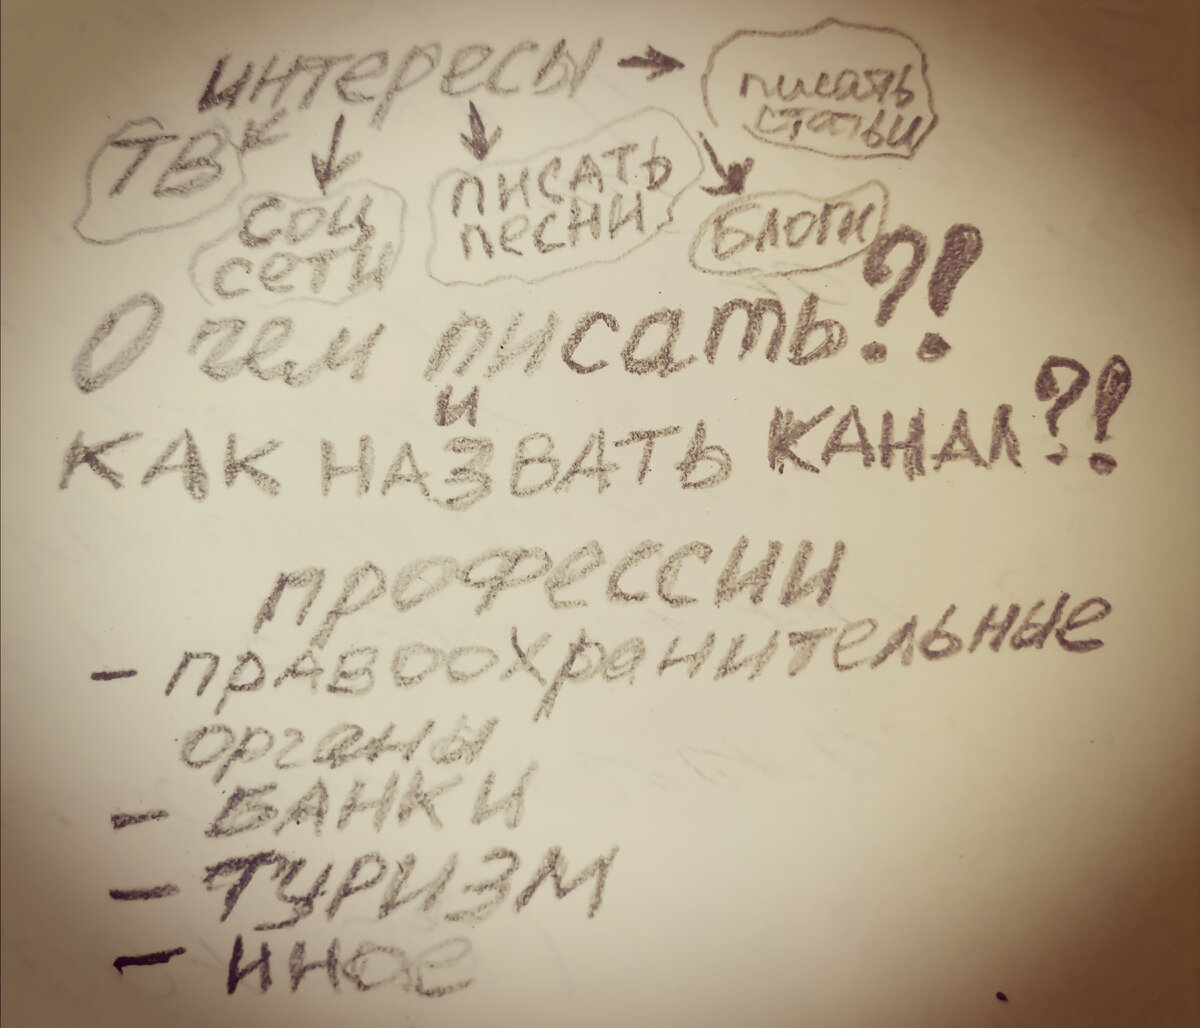 интересы
писать
статьи
ТВ
соц
сети
писать
песни
Блоги
О чем писать?!
и
КАК НАЗВАТЬ КАНАЛ?!
профессии
- правоохранительные
органы
- БАНКИ
- ТУРИЗМ
- иное